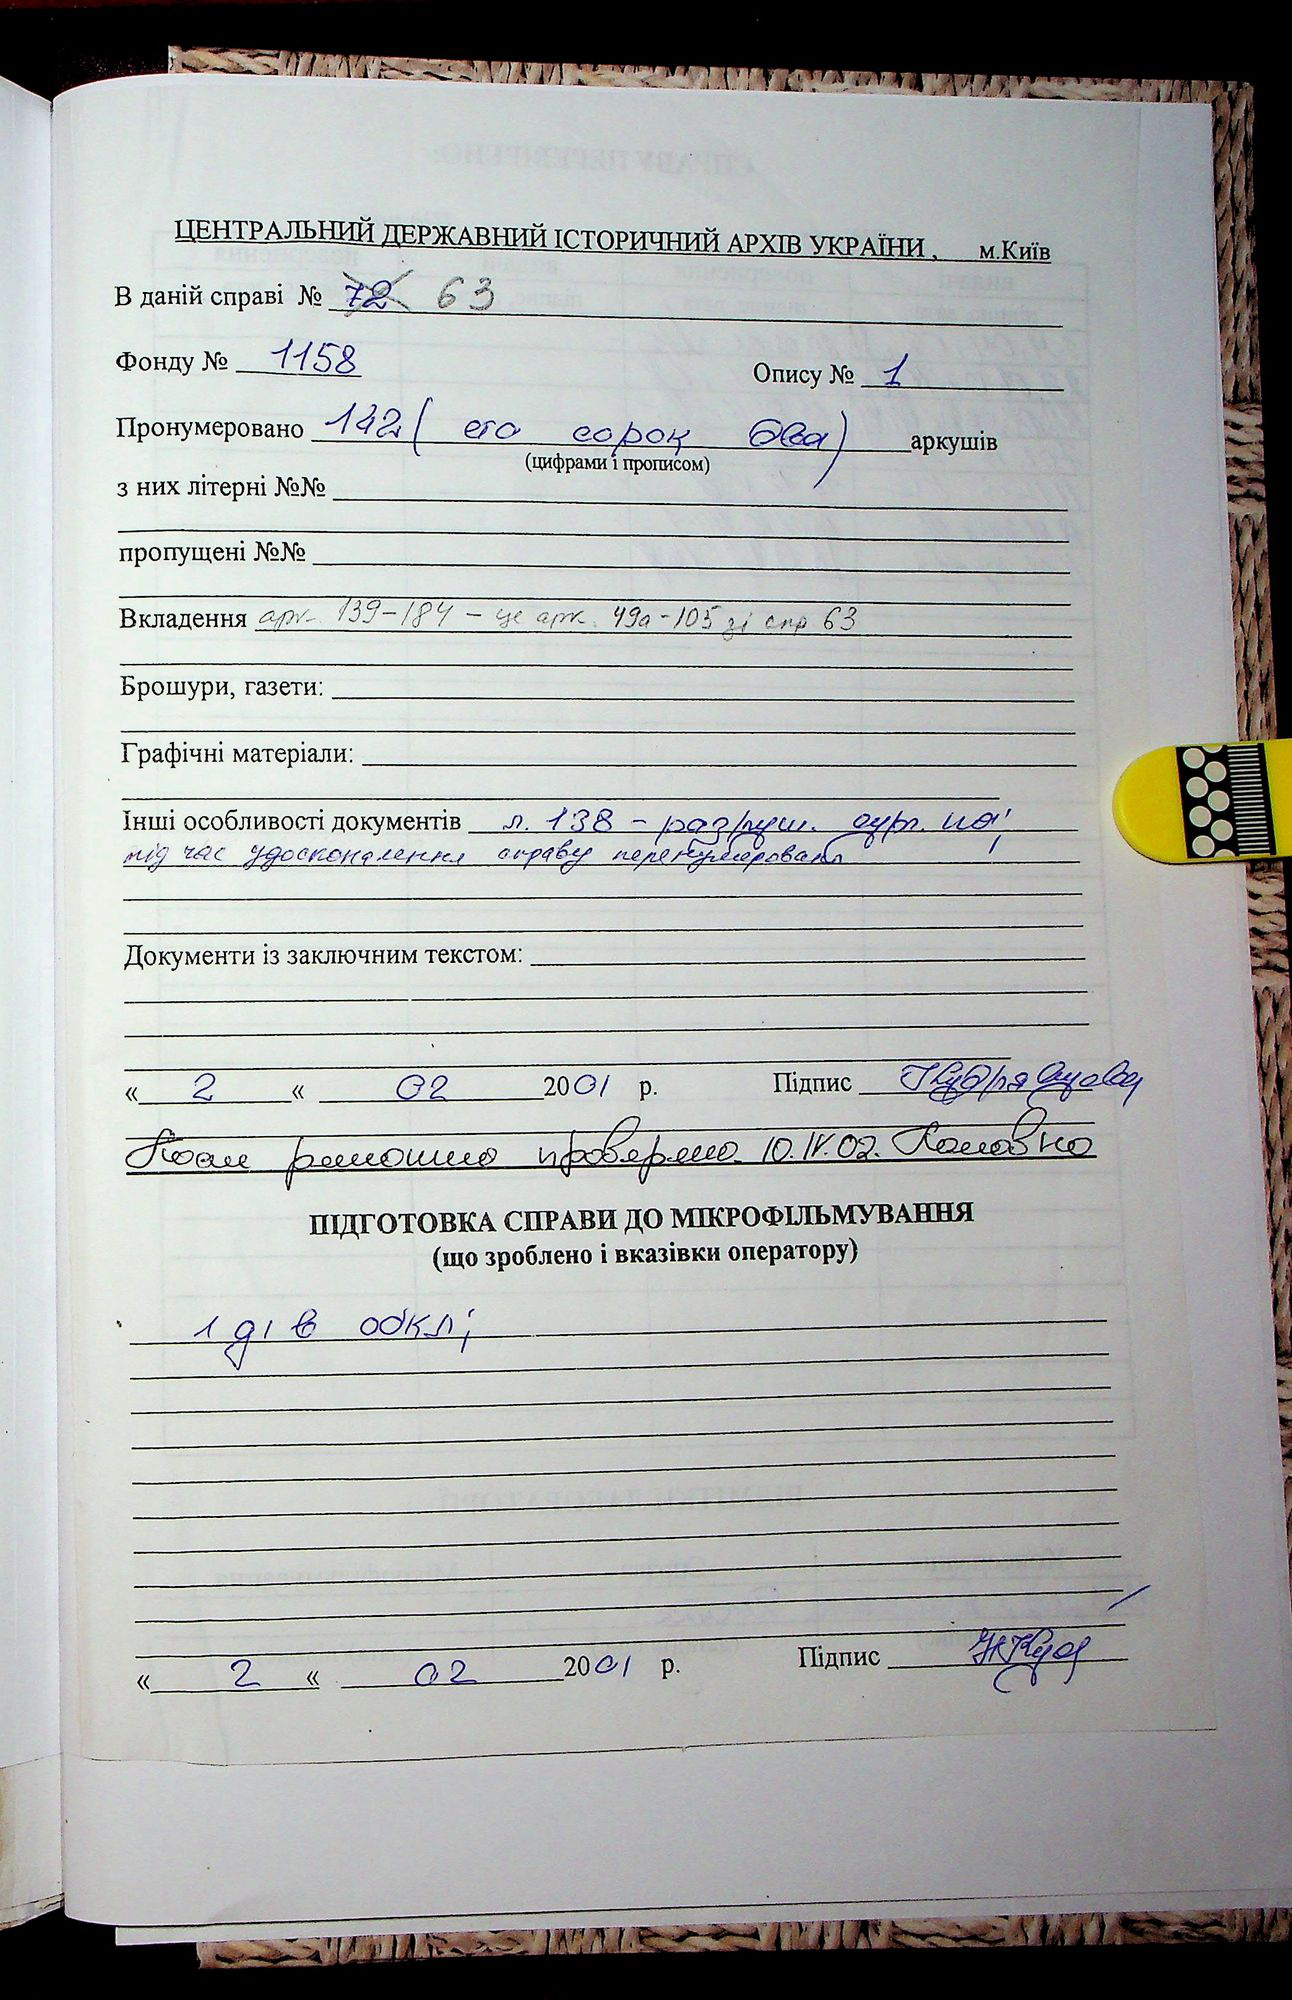 ЦЕНТРАЛЬНИЙ ДЕРЖАВНИЙ ІСТОРИЧНИЙ АРХІВ УКРАЇНИ, м.Київ
В даній справі № 72 63
Фонду № 1158 Опису № 1
Пронумеровано 142 ( сто сорок два) аркушів
(цифрами і прописом)
з них літерні №№
пропущені №№
Вкладення арк. 139-184 - це арк. 49а-105 зі спр 63
Брошури, газети:
Графічні матеріали:
Інші особливості документів л. 138 - разруш.
під час удосконалення справу перенумеровано
Документи із заключним текстом:
« 2 « 02 2001 р. Підпис Кудрявцева
проверено 10.IV.02.
ПІДГОТОВКА СПРАВИ ДО МІКРОФІЛЬМУВАННЯ
(що зроблено і вказівки оператору)
1 ді в обкл;
« 2 « 02 2001 р. Підпис